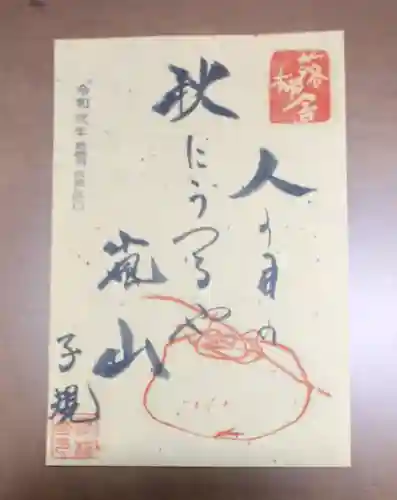 落柿舎
人の目の
秋にうつるや
嵐山
子規
令和 年